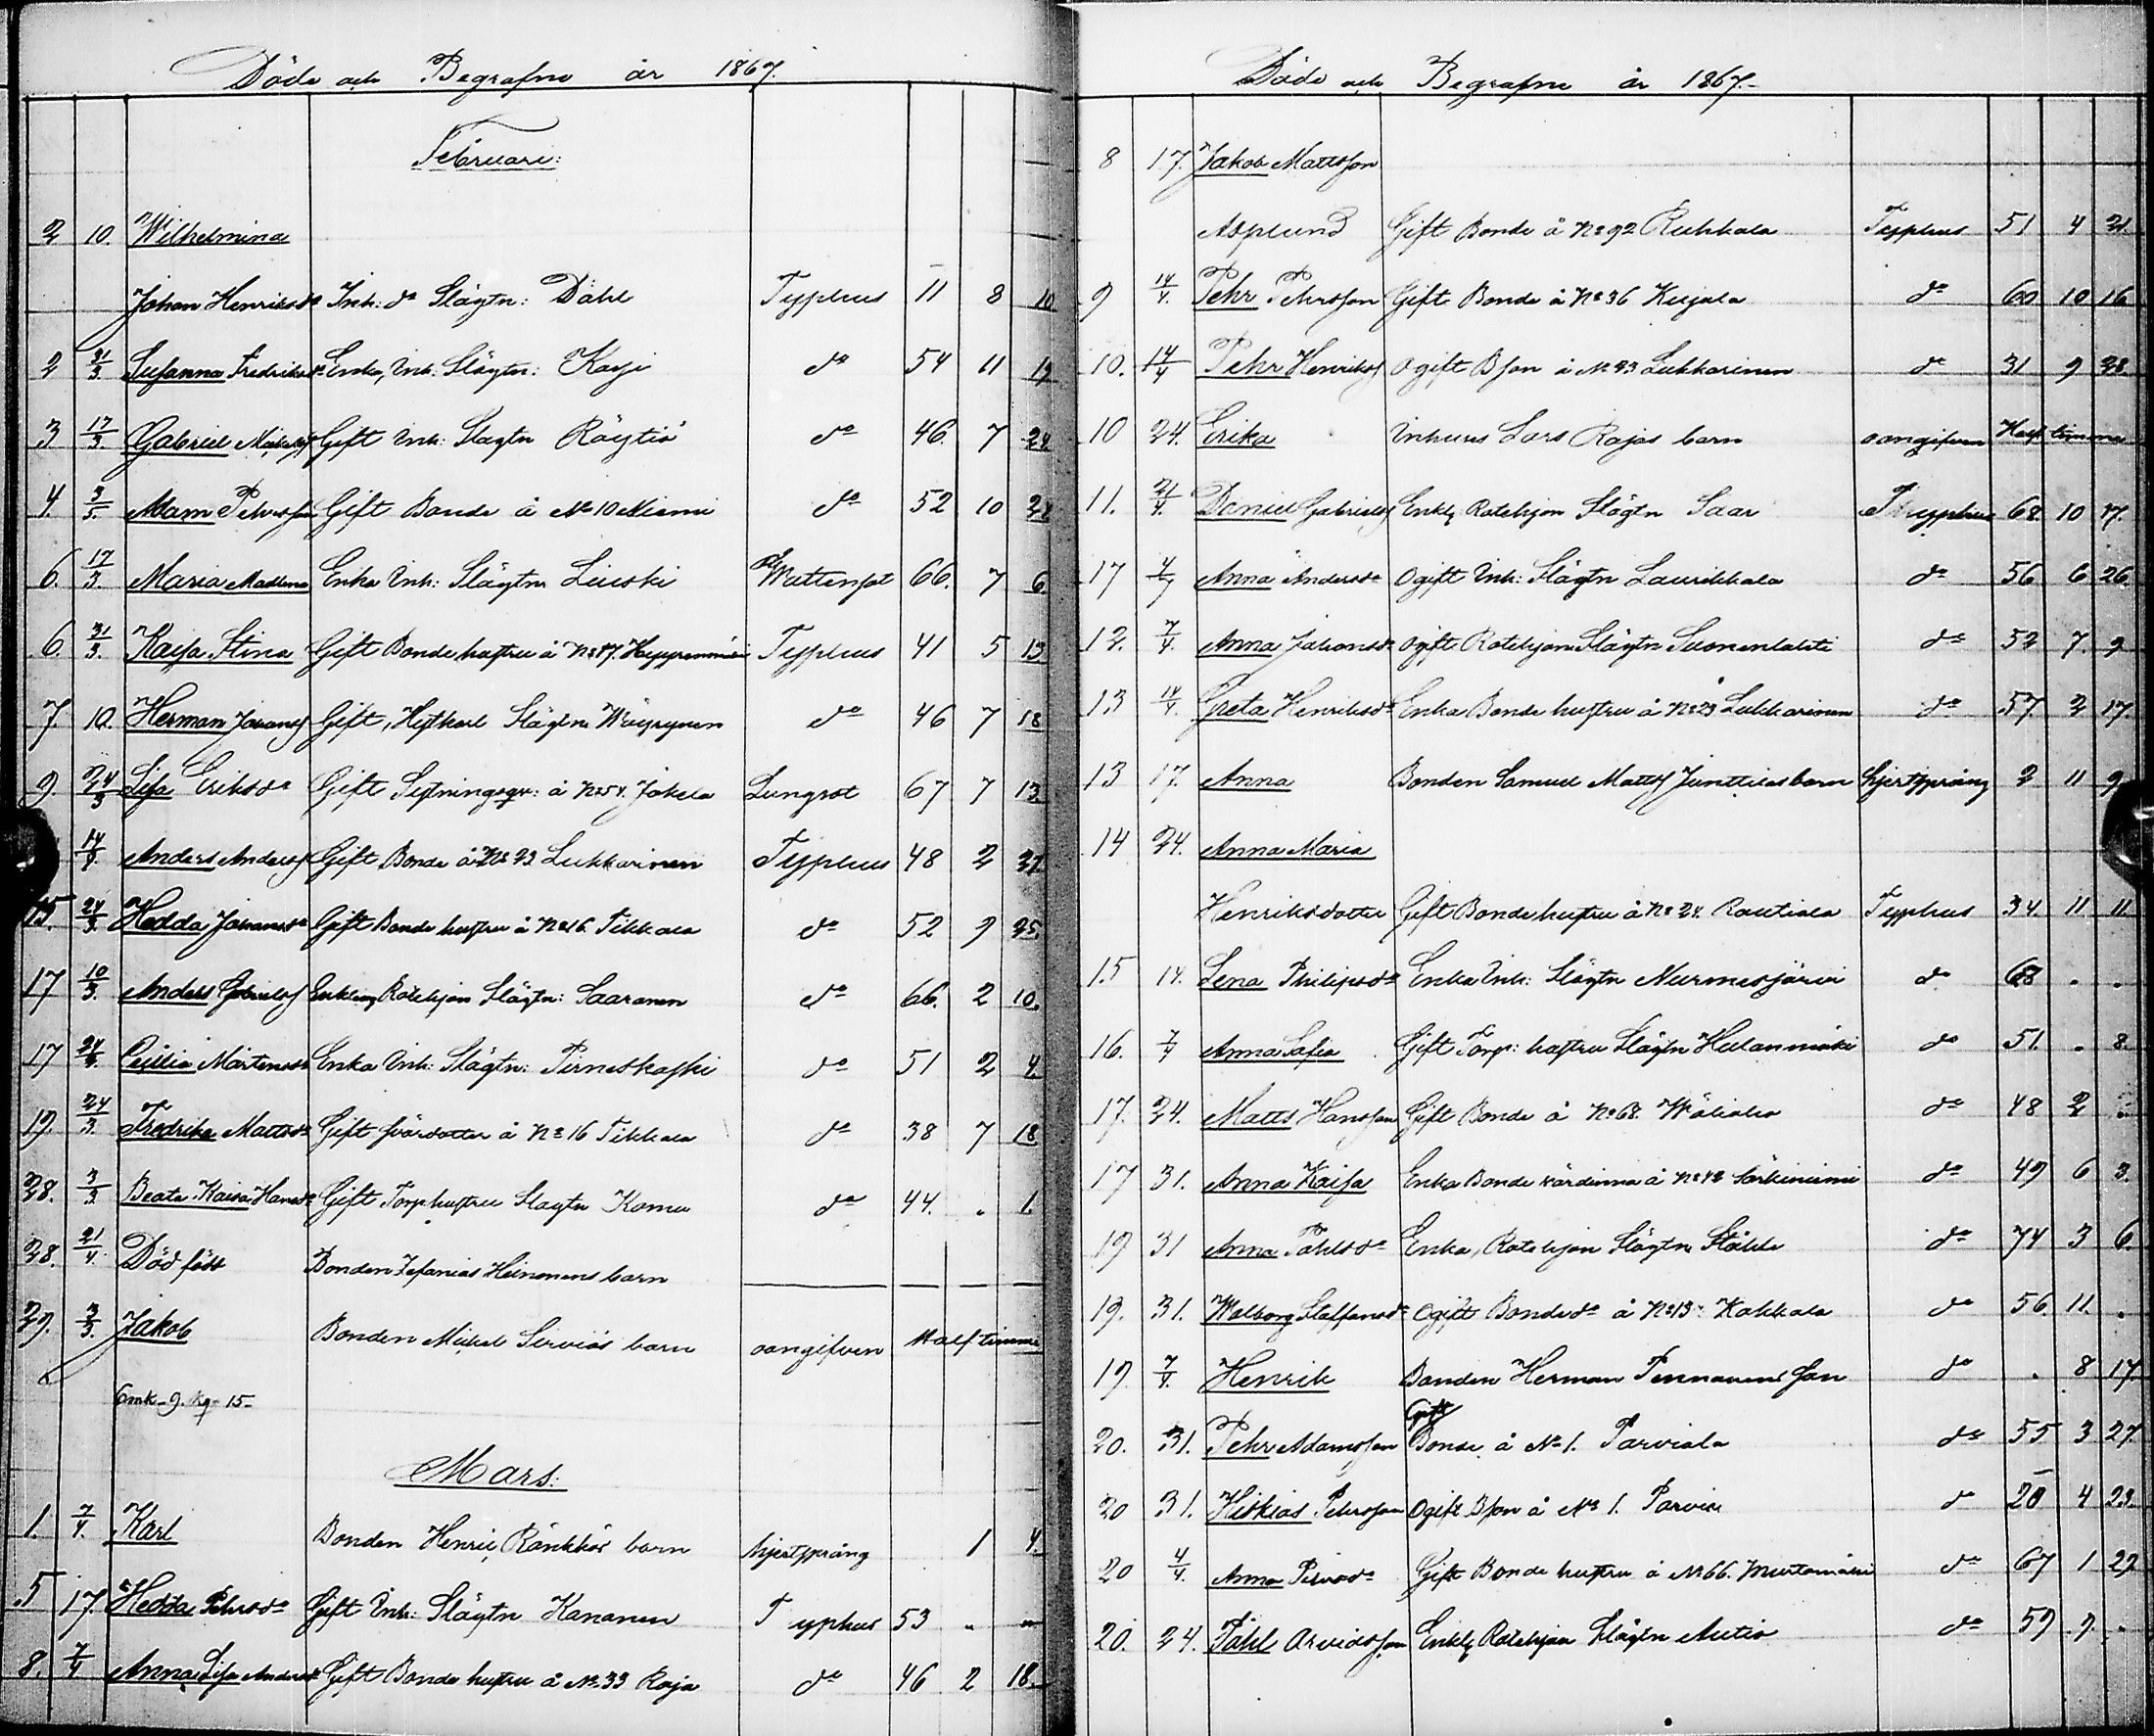 Döde och Begrafne år 1867.
Februari:
2 10. Wilhelmina
Johan Henriksdr Inh: dr Slägtn: Dähl Typhus 11 8 10
2 31/3 Susanna Fredriksdr Enka, Inh: Slägtn: Karji do 54 11 19
3 17/3 Gabriel Gift Inh: Slägtn Röytiö do 46. 7 24.
4. 3/5. Adam Pehrsson Gift Bonde å No 10 Niemi do 52 10 28
6. 17/3. Maria Madlena Enka Inh: Slägtn Liuski Wattensot 66. 7 6.
6. 31/3. Kajsa Stina Gift Bonde hustru å No 17. Typhus 41 5 13
7. 10. Herman Johans Gift, Slägtn Wäyrynen do 46 7 18
9. 24/3 Lisa Eriksdr Gift Sytningsqv: å No 54. Jokela Lungsot 67 7 13.
14/3. Anders Anders Gift Bonde å No 23 Lukkarinen Typhus 48 2
15. 24/3. Hedda Johansdr Gift Bonde hustru å No 16. Tikkala do 52 9 25.
17 10/3. Anders Gabriels Enkling Rotehjon Slägtn: Saaranen do 66. 2 10.
17 24/3. Cecilia Mårtensdr Enka Inh: Slägtn: Pirneskoski do 51 2 4.
19. 24/3. Fredrika Mattsdr Gift svärdotter å No 16 Tikkala do 38 7 18
28. 3/3 Beata Kaisa Hansdr Gift Torp hustru Slagtn Komu do 44. . 1.
28. 21/4. Död född Bonden Zefanias Heinonens barn — — — —
29. 3/3. Jakob Bonden Mickel Serviös barn oangifven Half timme
6mk - 9. Kg - 15 -
Mars:
1. 7/4. Karl Bonden Henric Ränkkös barn hjertsprång 1 4.
5 17. Hedda Pehrsdr Gift Inh: Slägtn Kananen Typhus 53 . –
8. 7/4 Anna Lisa Andersdr Gift Bonde hustru å No. 33 Raja do 46 2 18.
Döde och Begrafne år 1867.-
8 17. Jakob Mattsson
Asplund Gift Bonde å No 92 Ruhkala Typhus 51 4 21.
9 14/4. Pehr Pehrsson Gift Bonde å No 36 Kujala do 60 10 16
10. 14/4 Pehr Henriks Ogift Bson å No 23 Lukkarinen do 31 9 28.
10 24. Erika Inhuus Lars Rajas barn oangifven Half timme
11. 21/4. Daniel Gabriels Enkl: Rotehjon Slägtn Saar Thyphus 68. 10 17.
17 4/7 Anna Andersdr Ogift Inh: Slägtn Laurikkala do 56 6 26.
12. 7/4. Anna Johansdr Ogift Rotehjon Slägtn Suonenlahti do 52 7. 9
13 14/4. Greta Henriksdr Enka Bonde hustru å No 23 Lukkarinen do 57. 2 17.
13 17. Anna Bonden Samuel Matts Junttilas barn hjertsprång 2 11 9
14 24. Anna Maria
Henriksdotter Gift Bonde hustru å No 24. Rautiola Typhus 34. 11 11
15 14. Lena Philipsdr Enka Inh: Slägtn Nurmesjärvi do 68 . .
16. 7/4 Anna Sofia Gift Torp: hustru Slägtn Hulanmäki do 51. . 8.
17. 24. Matts Hansson Gift Bonde å No 68. Wälialo do 48 2 .
17 31. Anna Kaisa Enka Bonde värdinna å No 42 Särkiniemi do 49 6 3.
19 31 Anna Påhlsdr Enka, Rotehjon Slägtn Ståhle do 74 3 6.
19. 31. Walborg Staffansdr Ogift Bondedr å No 13 Kokkola do 56. 11. .
19. 7/4. Henrik Bonden Herman Pennanens son do . 8 17
Gift
20. 31. Pehr Adamsson Bonde å No 1. Parviala do 55 3 27.
20 31. Hiskias Pehrsson Ogift Bson å No 1. Parvia do 20 4 23.
20 4/4. Anna Gift Bonde hustru å No 66. Murtomäki do 67 1 22
20. 24. Påhl Arvidsson Enkl: Rotehjon Slägtn Autio do 59 9. .